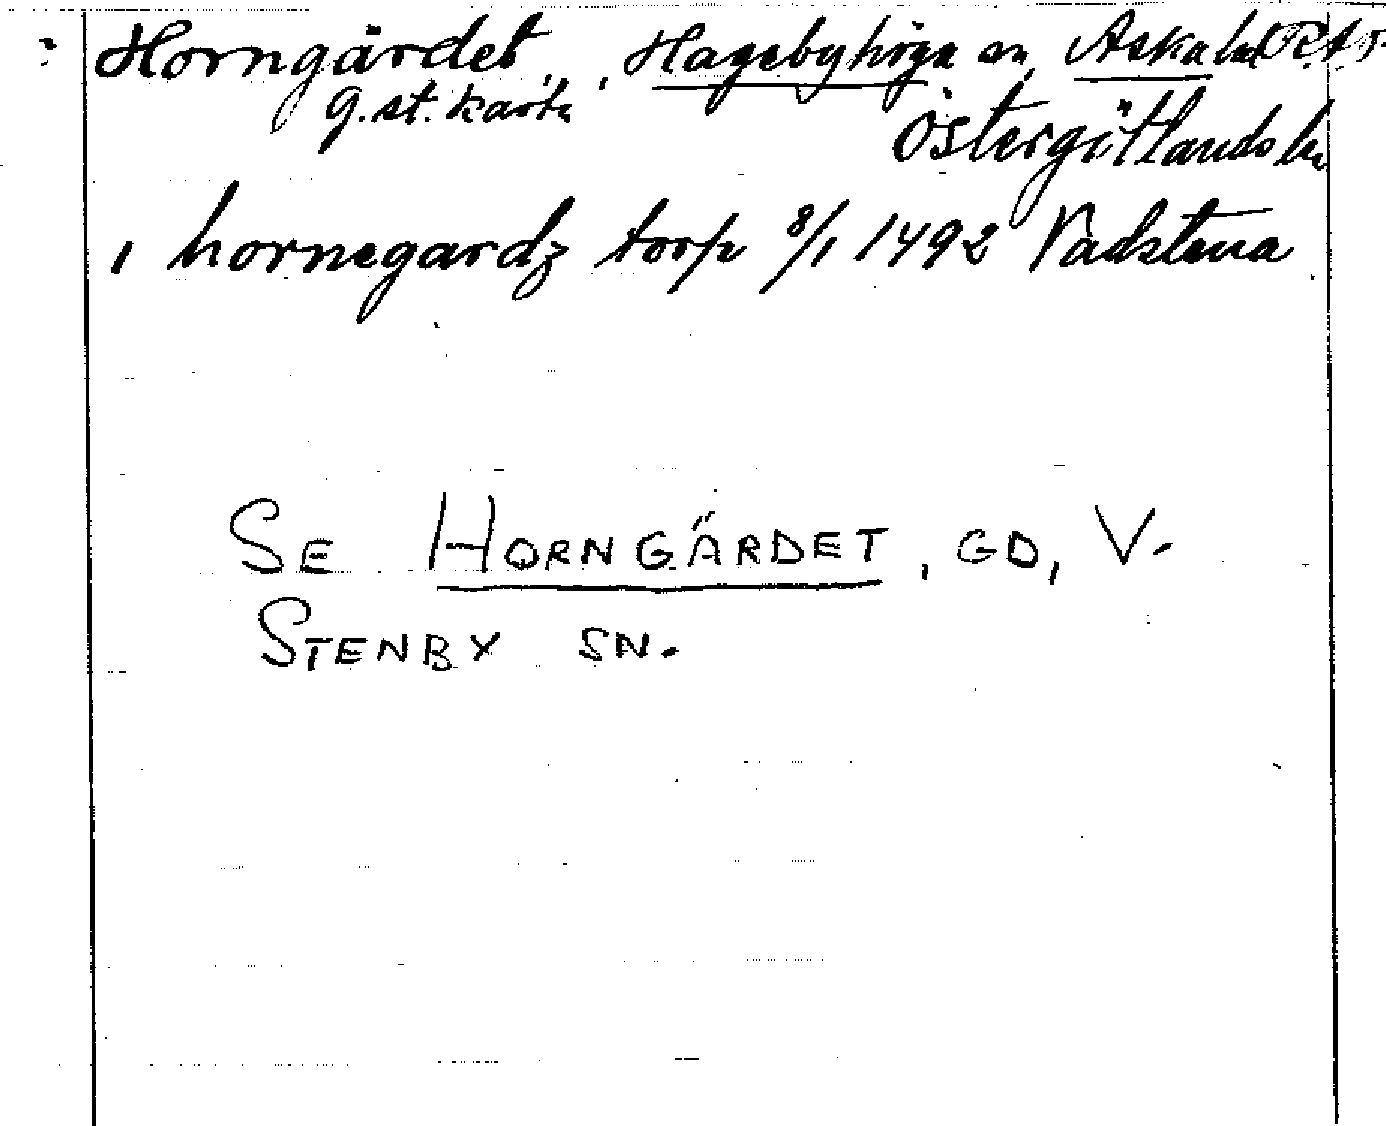 Horngärdet, Hagebyhöga sn, Aska hd
g. st. karta
Östergötlands län
i hornegardz torp 8/1 1492 Vadstena
SE HORNGÄRDET, GD, V.
STENBY SN.